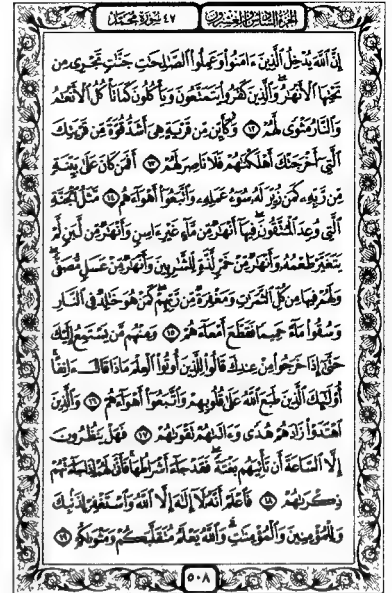 الجزء السادس والعشرون ٤٧ سورة محمد
إِنَّ ٱللَّهَ يُدْخِلُ ٱلَّذِينَ ءَامَنُوا۟ وَعَمِلُوا۟ ٱلصَّـٰلِحَـٰتِ جَنَّـٰتٍ تَجْرِى مِن
تَحْتِهَا ٱلْأَنْهَـٰرُ ۖ وَٱلَّذِينَ كَفَرُوا۟ يَتَمَتَّعُونَ وَيَأْكُلُونَ كَمَا تَأْكُلُ ٱلْأَنْعَـٰمُ
وَٱلنَّارُ مَثْوًى لَّهُمْ ١٢ وَكَأَيِّن مِّن قَرْيَةٍ هِىَ أَشَدُّ قُوَّةً مِّن قَرْيَتِكَ
ٱلَّتِىٓ أَخْرَجَتْكَ أَهْلَكْنَـٰهُمْ فَلَا نَاصِرَ لَهُمْ ١٣ أَفَمَن كَانَ عَلَىٰ بَيِّنَةٍ
مِّن رَّبِّهِۦ كَمَن زُيِّنَ لَهُۥ سُوٓءُ عَمَلِهِۦ وَٱتَّبَعُوٓا۟ أَهْوَآءَهُم ١٤ مَّثَلُ ٱلْجَنَّةِ
ٱلَّتِى وُعِدَ ٱلْمُتَّقُونَ ۖ فِيهَآ أَنْهَـٰرٌ مِّن مَّآءٍ غَيْرِ ءَاسِنٍ وَأَنْهَـٰرٌ مِّن لَّبَنٍ لَّمْ
يَتَغَيَّرْ طَعْمُهُۥ وَأَنْهَـٰرٌ مِّنْ خَمْرٍ لَّذَّةٍ لِّلشَّـٰرِبِينَ وَأَنْهَـٰرٌ مِّنْ عَسَلٍ مُّصَفًّى ۖ
وَلَهُمْ فِيهَا مِن كُلِّ ٱلثَّمَرَٰتِ وَمَغْفِرَةٌ مِّن رَّبِّهِمْ ۖ كَمَنْ هُوَ خَـٰلِدٌ فِى ٱلنَّارِ
وَسُقُوا۟ مَآءً حَمِيمًا فَقَطَّعَ أَمْعَآءَهُمْ ١٥ وَمِنْهُم مَّن يَسْتَمِعُ إِلَيْكَ
حَتَّىٰٓ إِذَا خَرَجُوا۟ مِنْ عِندِكَ قَالُوا۟ لِلَّذِينَ أُوتُوا۟ ٱلْعِلْمَ مَاذَا قَالَ ءَانِفًا ۚ
أُو۟لَـٰٓئِكَ ٱلَّذِينَ طَبَعَ ٱللَّهُ عَلَىٰ قُلُوبِهِمْ وَٱتَّبَعُوٓا۟ أَهْوَآءَهُمْ ١٦ وَٱلَّذِينَ
ٱهْتَدَوْا۟ زَادَهُمْ هُدًى وَءَاتَىٰهُمْ تَقْوَىٰهُمْ ١٧ فَهَلْ يَنظُرُونَ
إِلَّا ٱلسَّاعَةَ أَن تَأْتِيَهُم بَغْتَةً ۖ فَقَدْ جَآءَ أَشْرَاطُهَا ۚ فَأَنَّىٰ لَهُمْ إِذَا جَآءَتْهُمْ
ذِكْرَىٰهُمْ ١٨ فَٱعْلَمْ أَنَّهُۥ لَآ إِلَـٰهَ إِلَّا ٱللَّهُ وَٱسْتَغْفِرْ لِذَنۢبِكَ
وَلِلْمُؤْمِنِينَ وَٱلْمُؤْمِنَـٰتِ ۗ وَٱللَّهُ يَعْلَمُ مُتَقَلَّبَكُمْ وَمَثْوَىٰكُمْ ١٩
٥٠٨